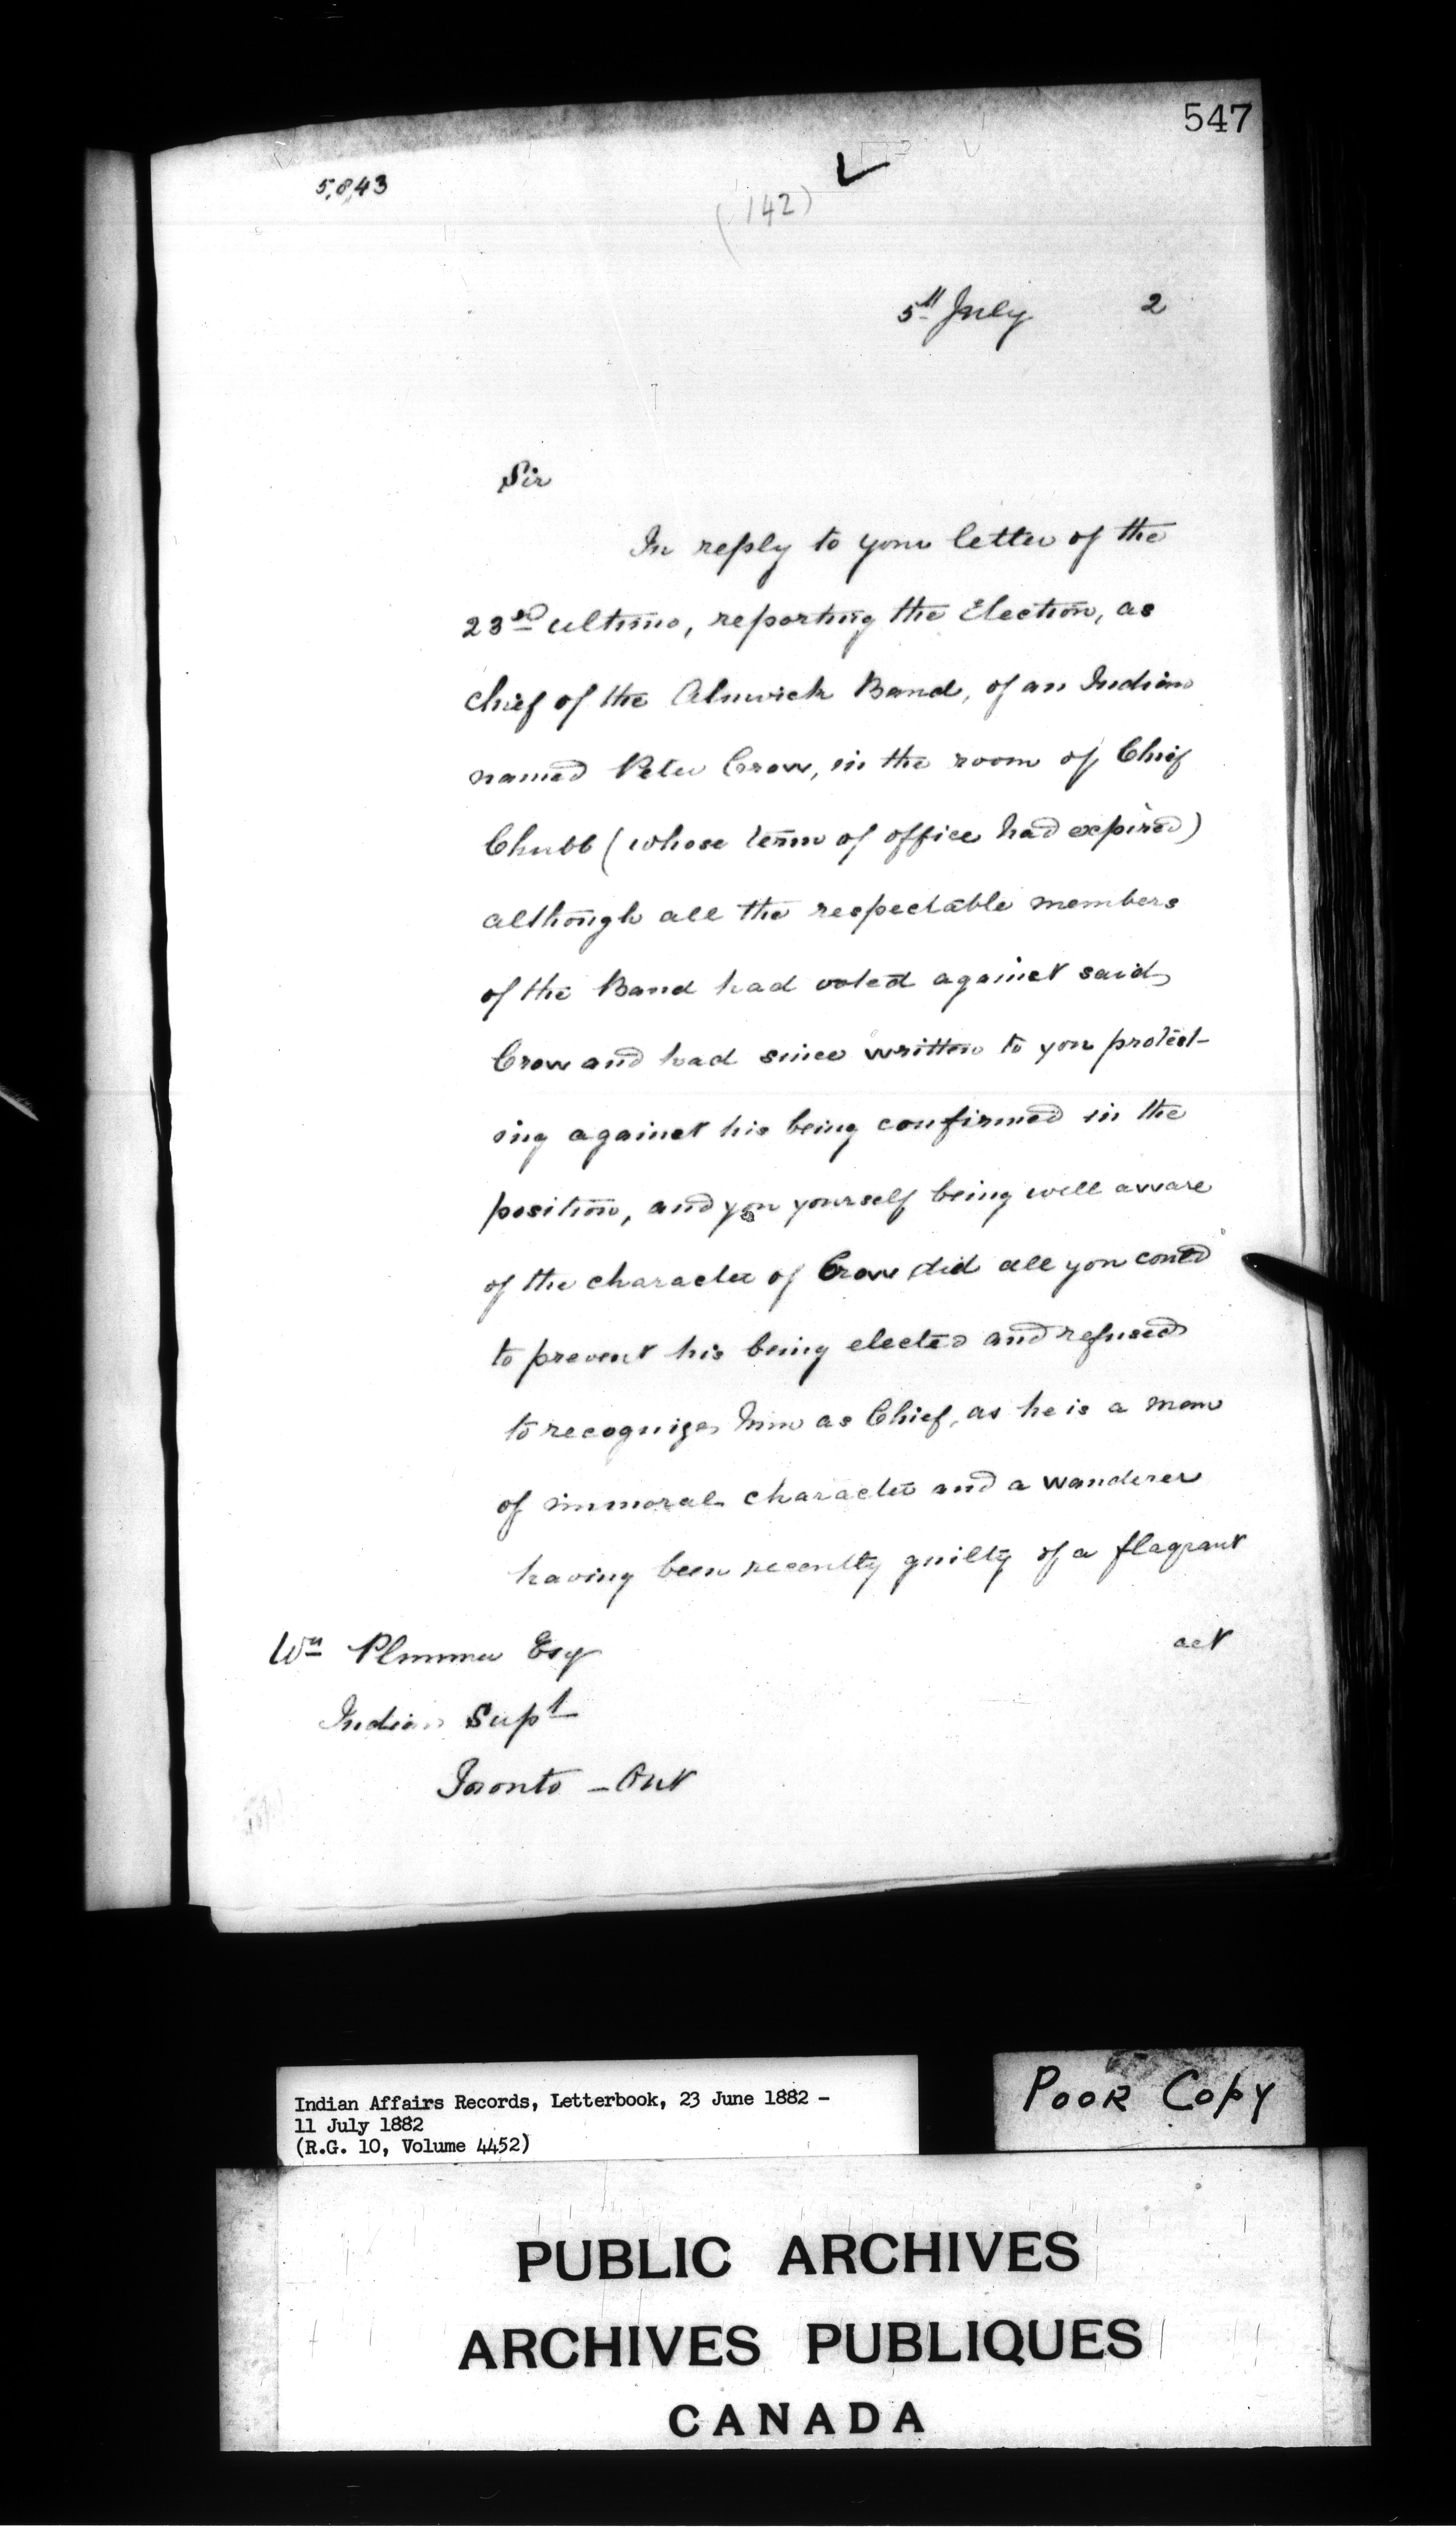 547
5,843
(142)
5th July 2
Sir
In reply to your letter of the
23rd ultimo, reporting the Election, as
Chief of the Alnwick Band, of an Indian
named Peter Crow, in the room of Chief
Chubb (whose term of office had expired)
although all the respectable members
of the Band had voted against said
Crow and had since written to you protest-
ing against his being confirmed in the
position, and you yourself being well aware
of the character of Crow did all you could
to prevent his being elected and refused
to recognize him as Chief, as he is a man
of immoral character and a wanderer
having been recently guilty of a flagrant
act
Wm Plummer Esq
Indian Supt
Toronto - Ont
Indian Affairs Records, Letterbook, 23 June 1882 -
11 July 1882
(R.G. 10, Volume 4452)
POOR COPY
PUBLIC ARCHIVES
ARCHIVES PUBLIQUES
CANADA